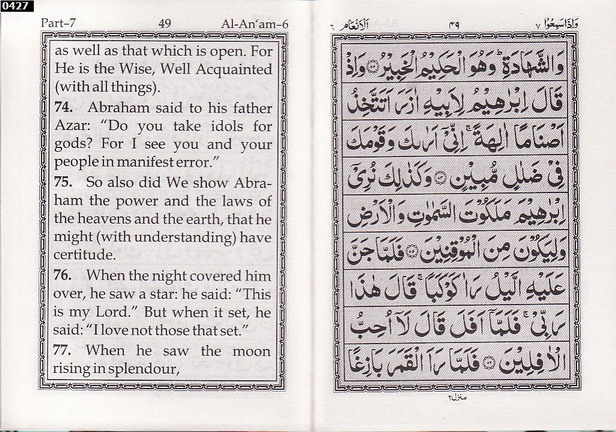 0427
Part–7 49 Al-An’am–6
as well as that which is open. For
He is the Wise, Well Acquainted
(with all things).
74. Abraham said to his father
Azar: “Do you take idols for
gods? For I see you and your
people in manifest error.”
75. So also did We show Abra-
ham the power and the laws of
the heavens and the earth, that he
might (with understanding) have
certitude.
76. When the night covered him
over, he saw a star: he said: “This
is my Lord.” But when it set, he
said: “I love not those that set.”
77. When he saw the moon
rising in splendour,
وَاِذَا سَمِعُوۡا ۷ ۴۹ اَلۡاَنۡعَام ۶
وَالشَّهَادَةِ ؕ وَهُوَ الۡحَكِيۡمُ الۡخَبِيۡرُ ﴿۷۳﴾ وَاِذۡ
قَالَ اِبۡرٰهِيۡمُ لِاَبِيۡهِ اٰزَرَ اَتَتَّخِذُ
اَصۡنَامًا اٰلِهَةً ۚ اِنِّىۡۤ اَرٰٮكَ وَقَوۡمَكَ
فِىۡ ضَلٰلٍ مُّبِيۡنٍ ﴿۷۴﴾ وَكَذٰلِكَ نُرِىۡۤ
اِبۡرٰهِيۡمَ مَلَكُوۡتَ السَّمٰوٰتِ وَالۡاَرۡضِ
وَلِيَكُوۡنَ مِنَ الۡمُوۡقِنِيۡنَ ﴿۷۵﴾ فَلَمَّا جَنَّ
عَلَيۡهِ الَّيۡلُ رَاٰ كَوۡكَبًا ۚ قَالَ هٰذَا
رَبِّىۡ ۚ فَلَمَّاۤ اَفَلَ قَالَ لَاۤ اُحِبُّ
الۡاٰفِلِيۡنَ ﴿۷۶﴾ فَلَمَّا رَاَ الۡقَمَرَ بَازِغًا
منزل۲